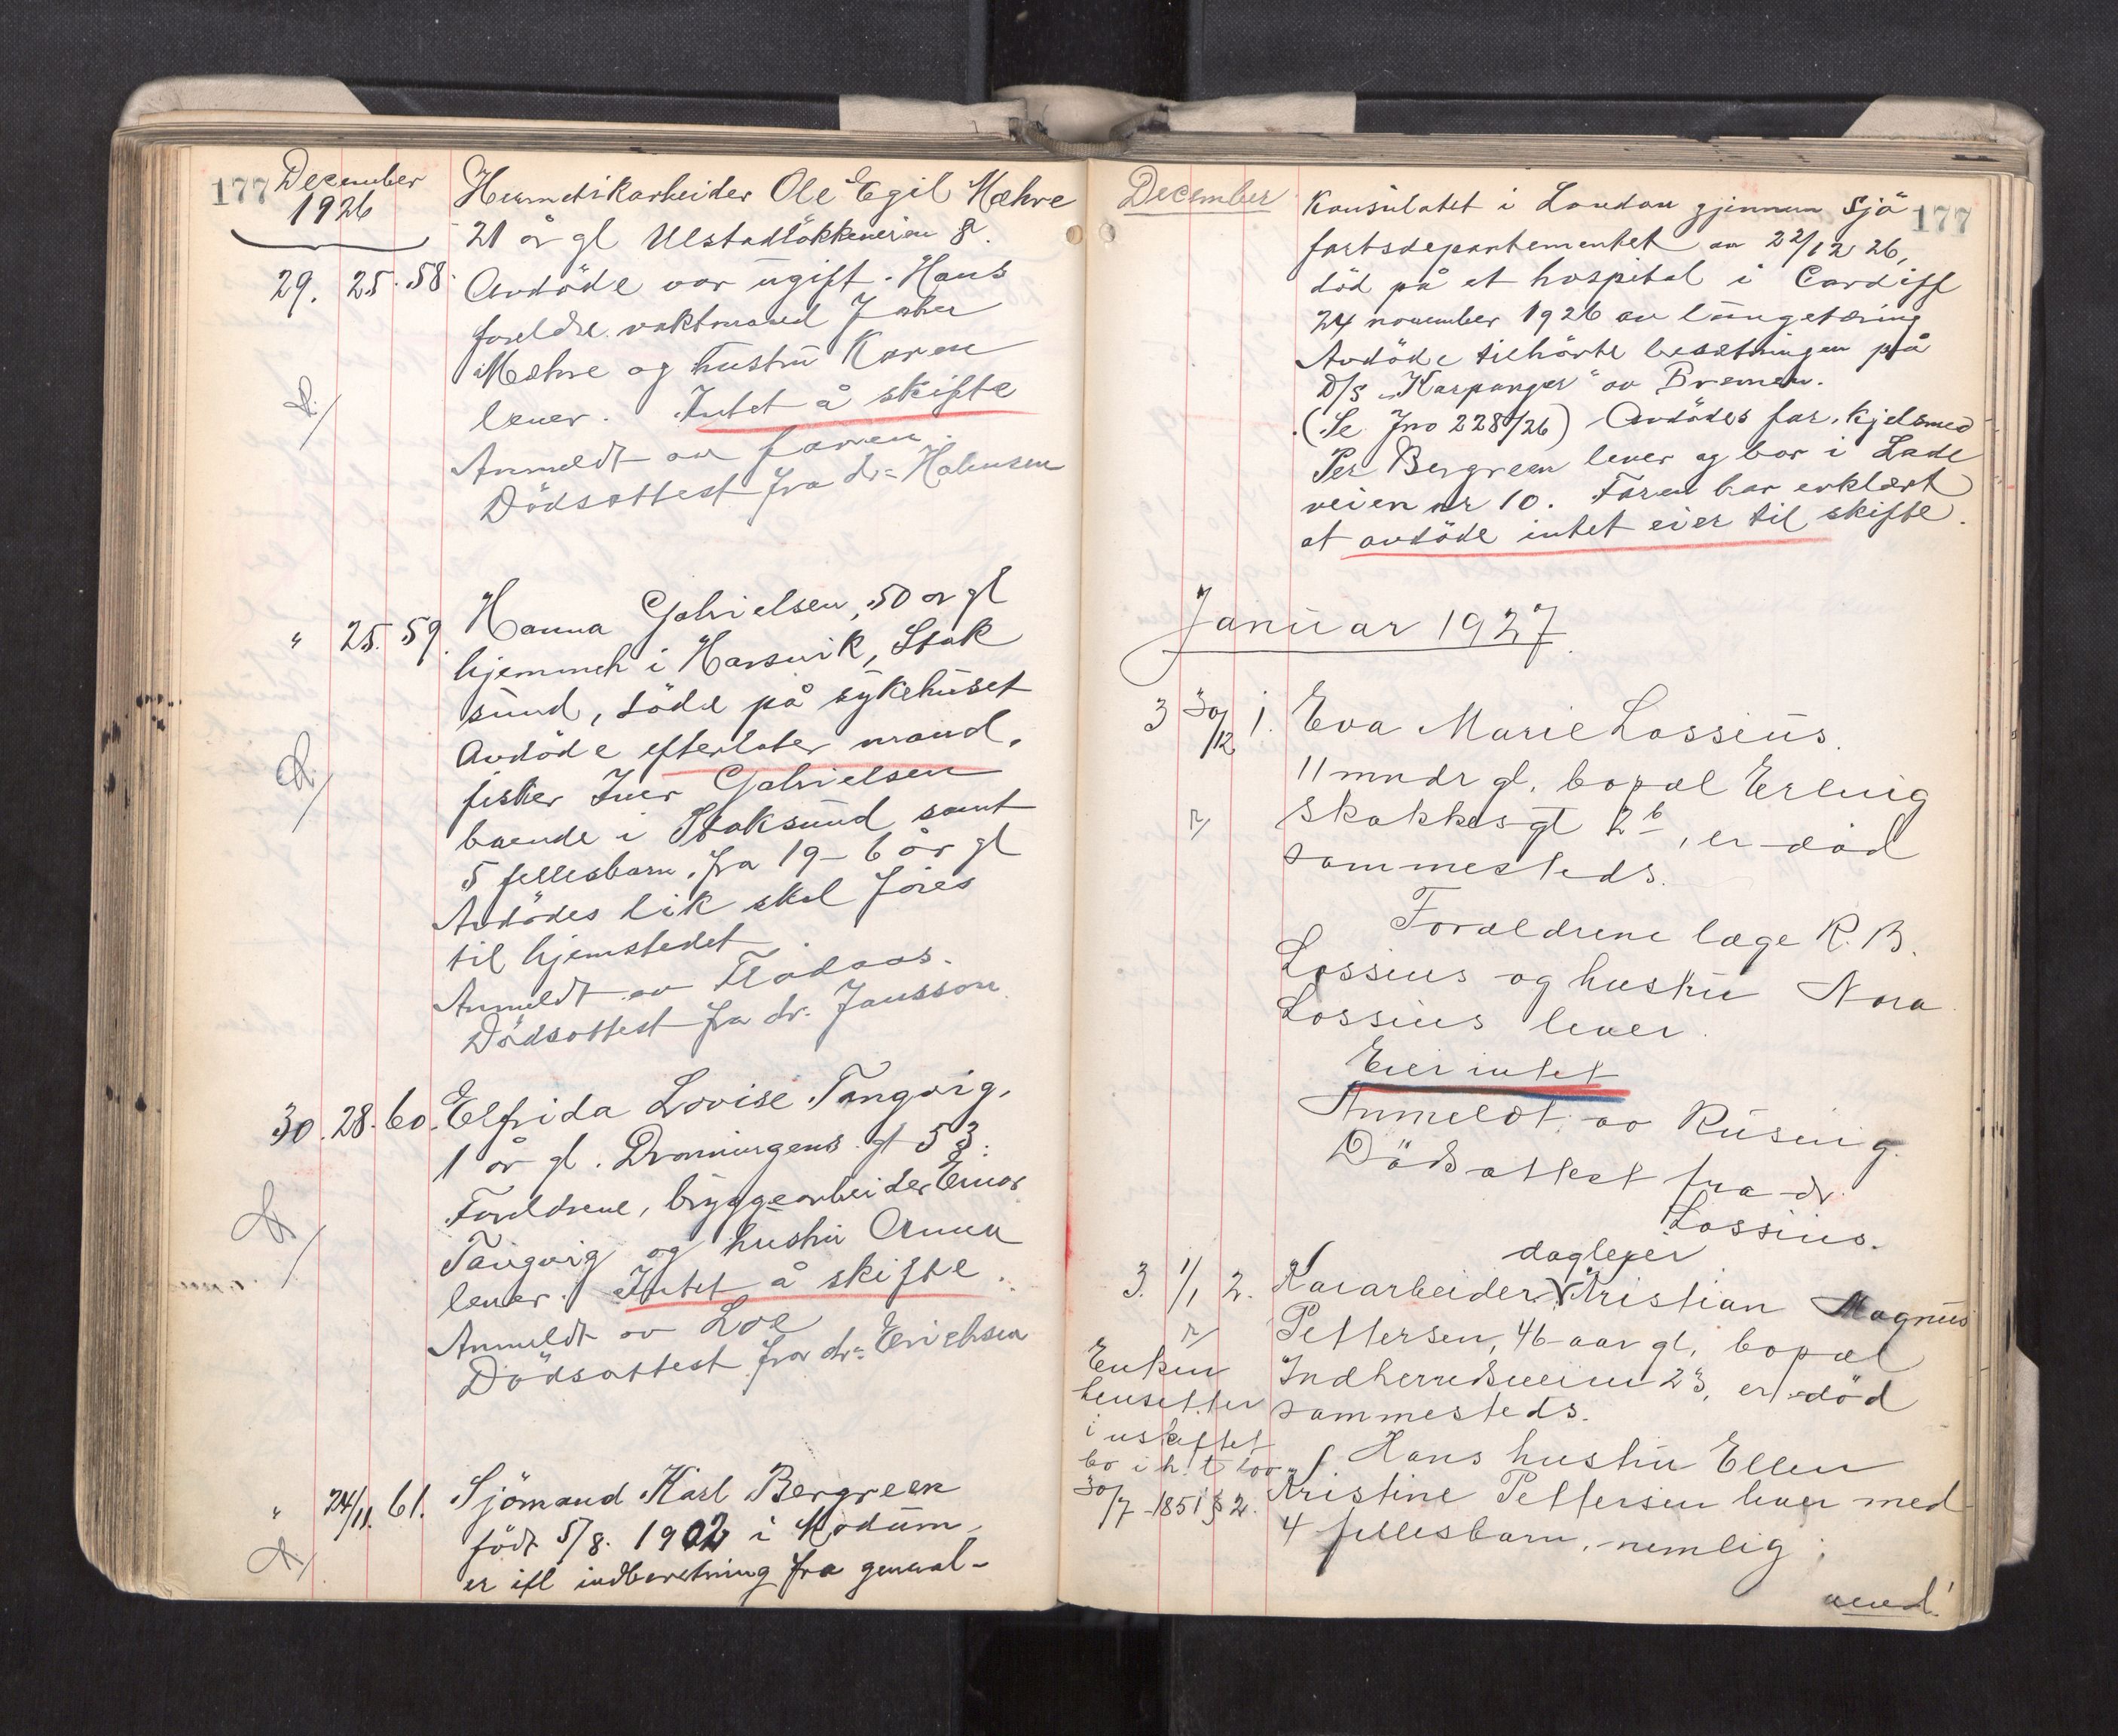 177 December
1926
Hermetikarbeider Ole Egil Mæhre
21 år gl Ulstadløkkeveien 8.
29. 25. 58. Avdöde var ugift. Hans
foreldre vaktmand Johan
Mæhre og hustru Karen
lever. Intet å skifte
Anmeldt av faren.
Dödsattest fra dr. Halvorsen
" 25. 59. Hanna Gabrielsen, 50 år gl
hjemmeh i Harsvik, Stok
sund, döde på sykehuset
Avdöde efterlater mand,
fisker Iver Gabrielsen
boende i Stoksund samt
5 fellesbarn, fra 19-6 år gl
Avdödes lik skal föres
til hjemstedet
Anmeldt av Flådaas.
Dödsattest fra dr. Jansson
30. 28. 60. Elfrida Lovise Tangvig,
1 år gl. Dronningens gt 53.
Foreldrene, bryggearbeider Einar
Tangvig og hustru Anna
lever. Intet å skifte.
Anmeldt av Loe
Dödsattest fra dr. Erichsen
" 24/11. 61. Sjömand Karl Bergreen
födt 5/8. 1902 i Modum,
er ifl indberetning fra general-
December 177
Konsulatet i London gjennem Sjö
fartsdepartementet av 22/12 26,
död på et hospital i Cardiff
24 november 1926 av lungetæring
Avdöde tilhörte besætningen på
D/S "Karpanger" av Bremen.
(Se Jno 228/26) Avdödes far, kjelsmed
Per Bergreen lever og bor i Lade
veien nr 10. Faren har erklært
at avdöde intet eier til skifte.
Januar 1927.
3 30/12 1. Eva Marie Lossius.
11 mndr gl, bopæl Erling
Skakkesgt 2b, er död
sammesteds.
Forældrene læge R. B.
Lossius og hustru Nora
Lossius lever.
Eier intet
Anmeldt av Rusing.
Dödsattest fra dr.
Lossius.
daglejer
3. 1/1 2. Kaiarbeider Kristian Magnus
Pettersen, 46 aar gl, bopæl
Indherredsveien 23, er död
sammesteds.
Enken
hensetter
i uskiftet
bo i h. t. lov
30/7-1851 § 2.
Hans hustru Ellen
Kristine Pettersen lever med
4 fellesbarn, nemlig:
vend!